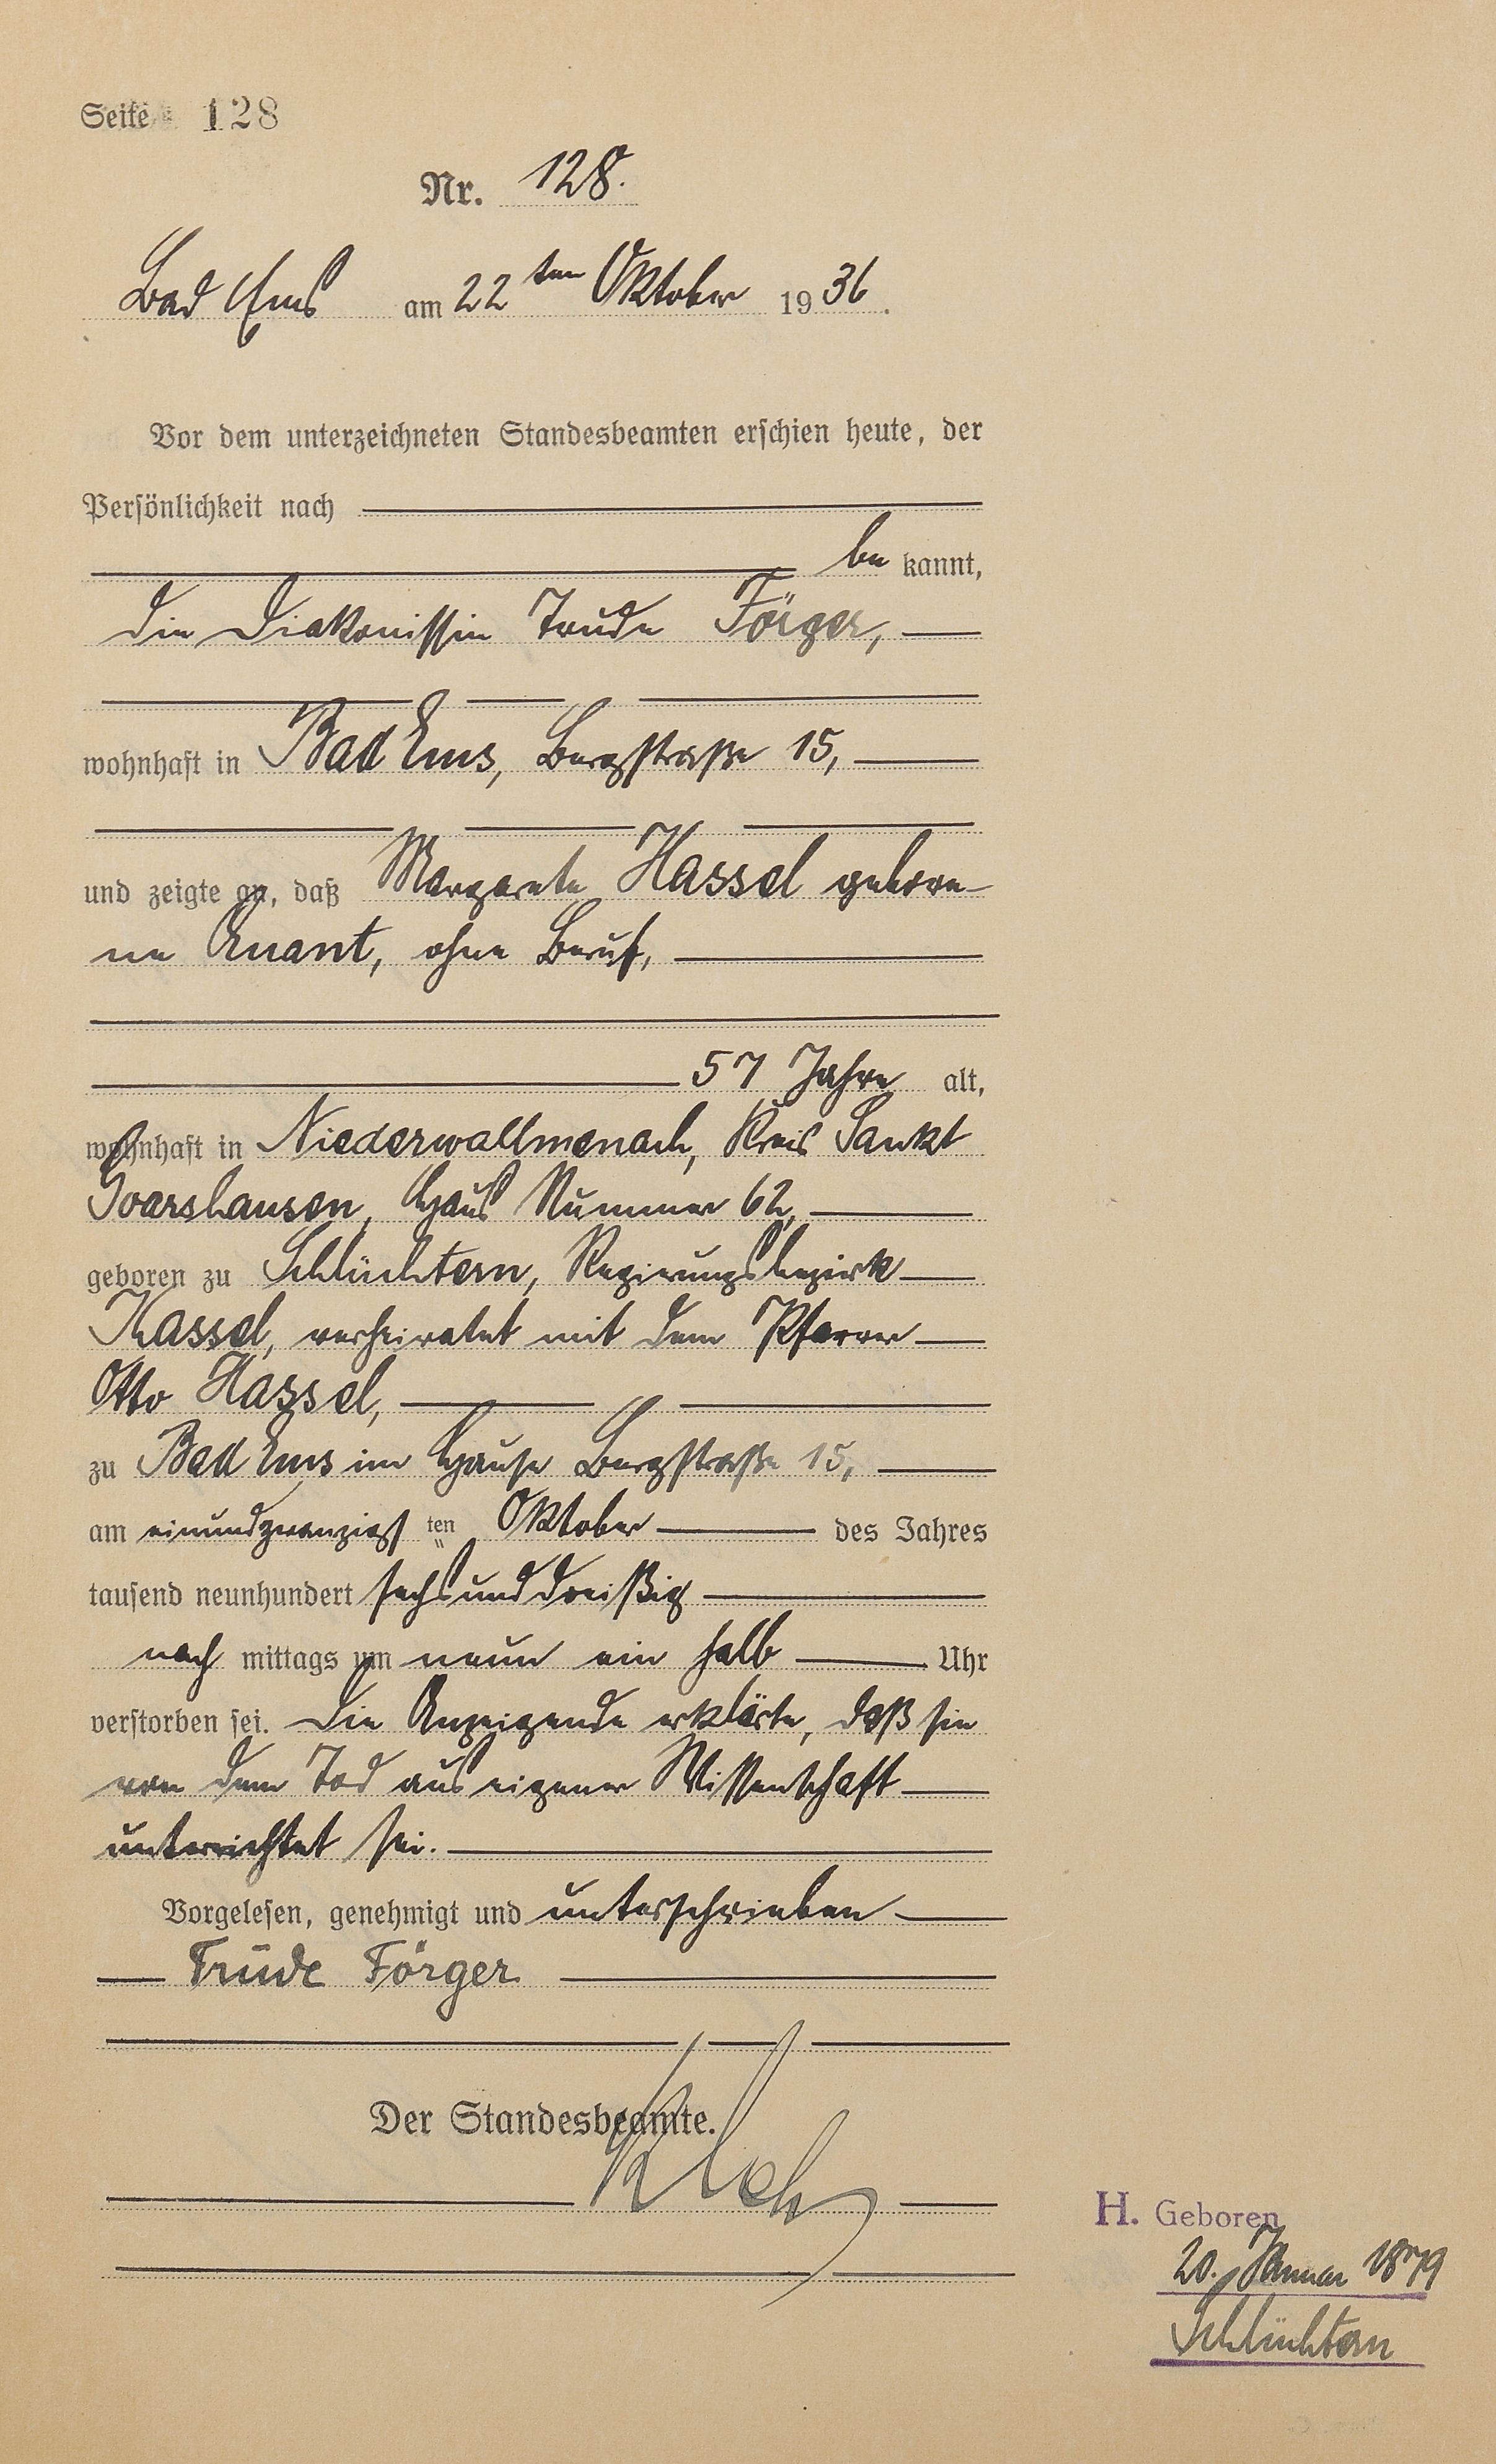 Seite 128
Nr. 128.
Bad Ems am 22ten Oktober 1936.
Vor dem unterzeichneten Standesbeamten erschien heute, der
Persönlichkeit nach
be kannt,
die Diakonissin Trude Förger,
wohnhaft in Bad Ems, Bergstraße 15,
und zeigte an, daß Margarete Hassel gebore-
ne Quant, ohne Beruf,
57 Jahre alt,
wohnhaft in Niederwallmenach, Kreis Sankt
Goarshausen, Haus Nummer 62,
geboren zu Schlüchtern, Regierungsbezirk
Kassel, verheiratet mit dem Pfarrer
Otto Hassel,
zu Bad Ems im Hause Bergstraße 15,
am einundzwanzigsten Oktober des Jahres
tausend neunhundert sechsunddreißig
nach mittags um neun ein halb Uhr
verstorben sei. Die Anzeigende erklärte, daß sie
von dem Tod aus eigener Wissenschaft
unterrichtet sei.
Vorgelesen, genehmigt und unterschrieben
Trude Förger
Der Standesbeamte.
H. Geboren
20. Januar 1879
Schlüchtern